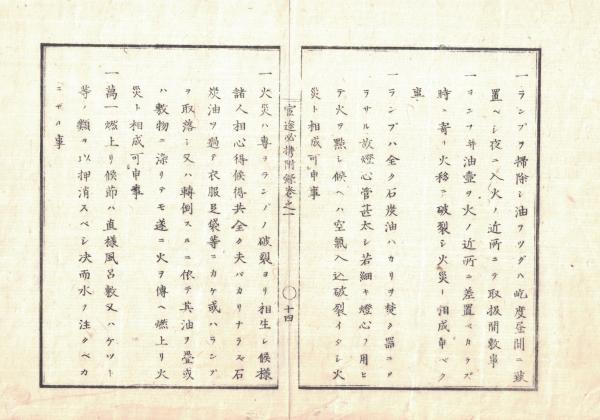 一ランプヲ掃除シ油ヲツグハ屹度昼間ニ致
置ベシ夜ニ入火ノ近所ニテ取扱間敷事
一ヨンプ并油壷ヲ火ノ近所ニ差置ベカラズ
時ニ寄リ火移ニ破裂シ火災ト相成申ベク
事
一ランプハ全ク石炭油ハカリヲ焚ク器ニ
ラサル故燈心管甚太シ若細キ燈心ヲ用ヒ
テ火ヲ點シ候ヘハ空氣入込破裂イタシ火
災ト相成可申事
官途必携附録巻之一
十四
一火災ハ専ラランプノ破裂ヨリ相生シ候様
諸人相心得候得共全ク夫バカリナラズ石
炭油ヲ過テ衣服足袋等ニカケ或ハランプ
ヲ取落シ又ハ轉倒スルニ依テ其油ヲ疊或
ハ敷物ニ染リテモ遂ニ火ヲ傳ヘ燃上リ火
災ト相成可申事
一萬一燃上リ候節ハ直様風呂敷又ハケツト
等ノ類ヲ以押消スベシ决而水ヲ注クベカ
ラザル事